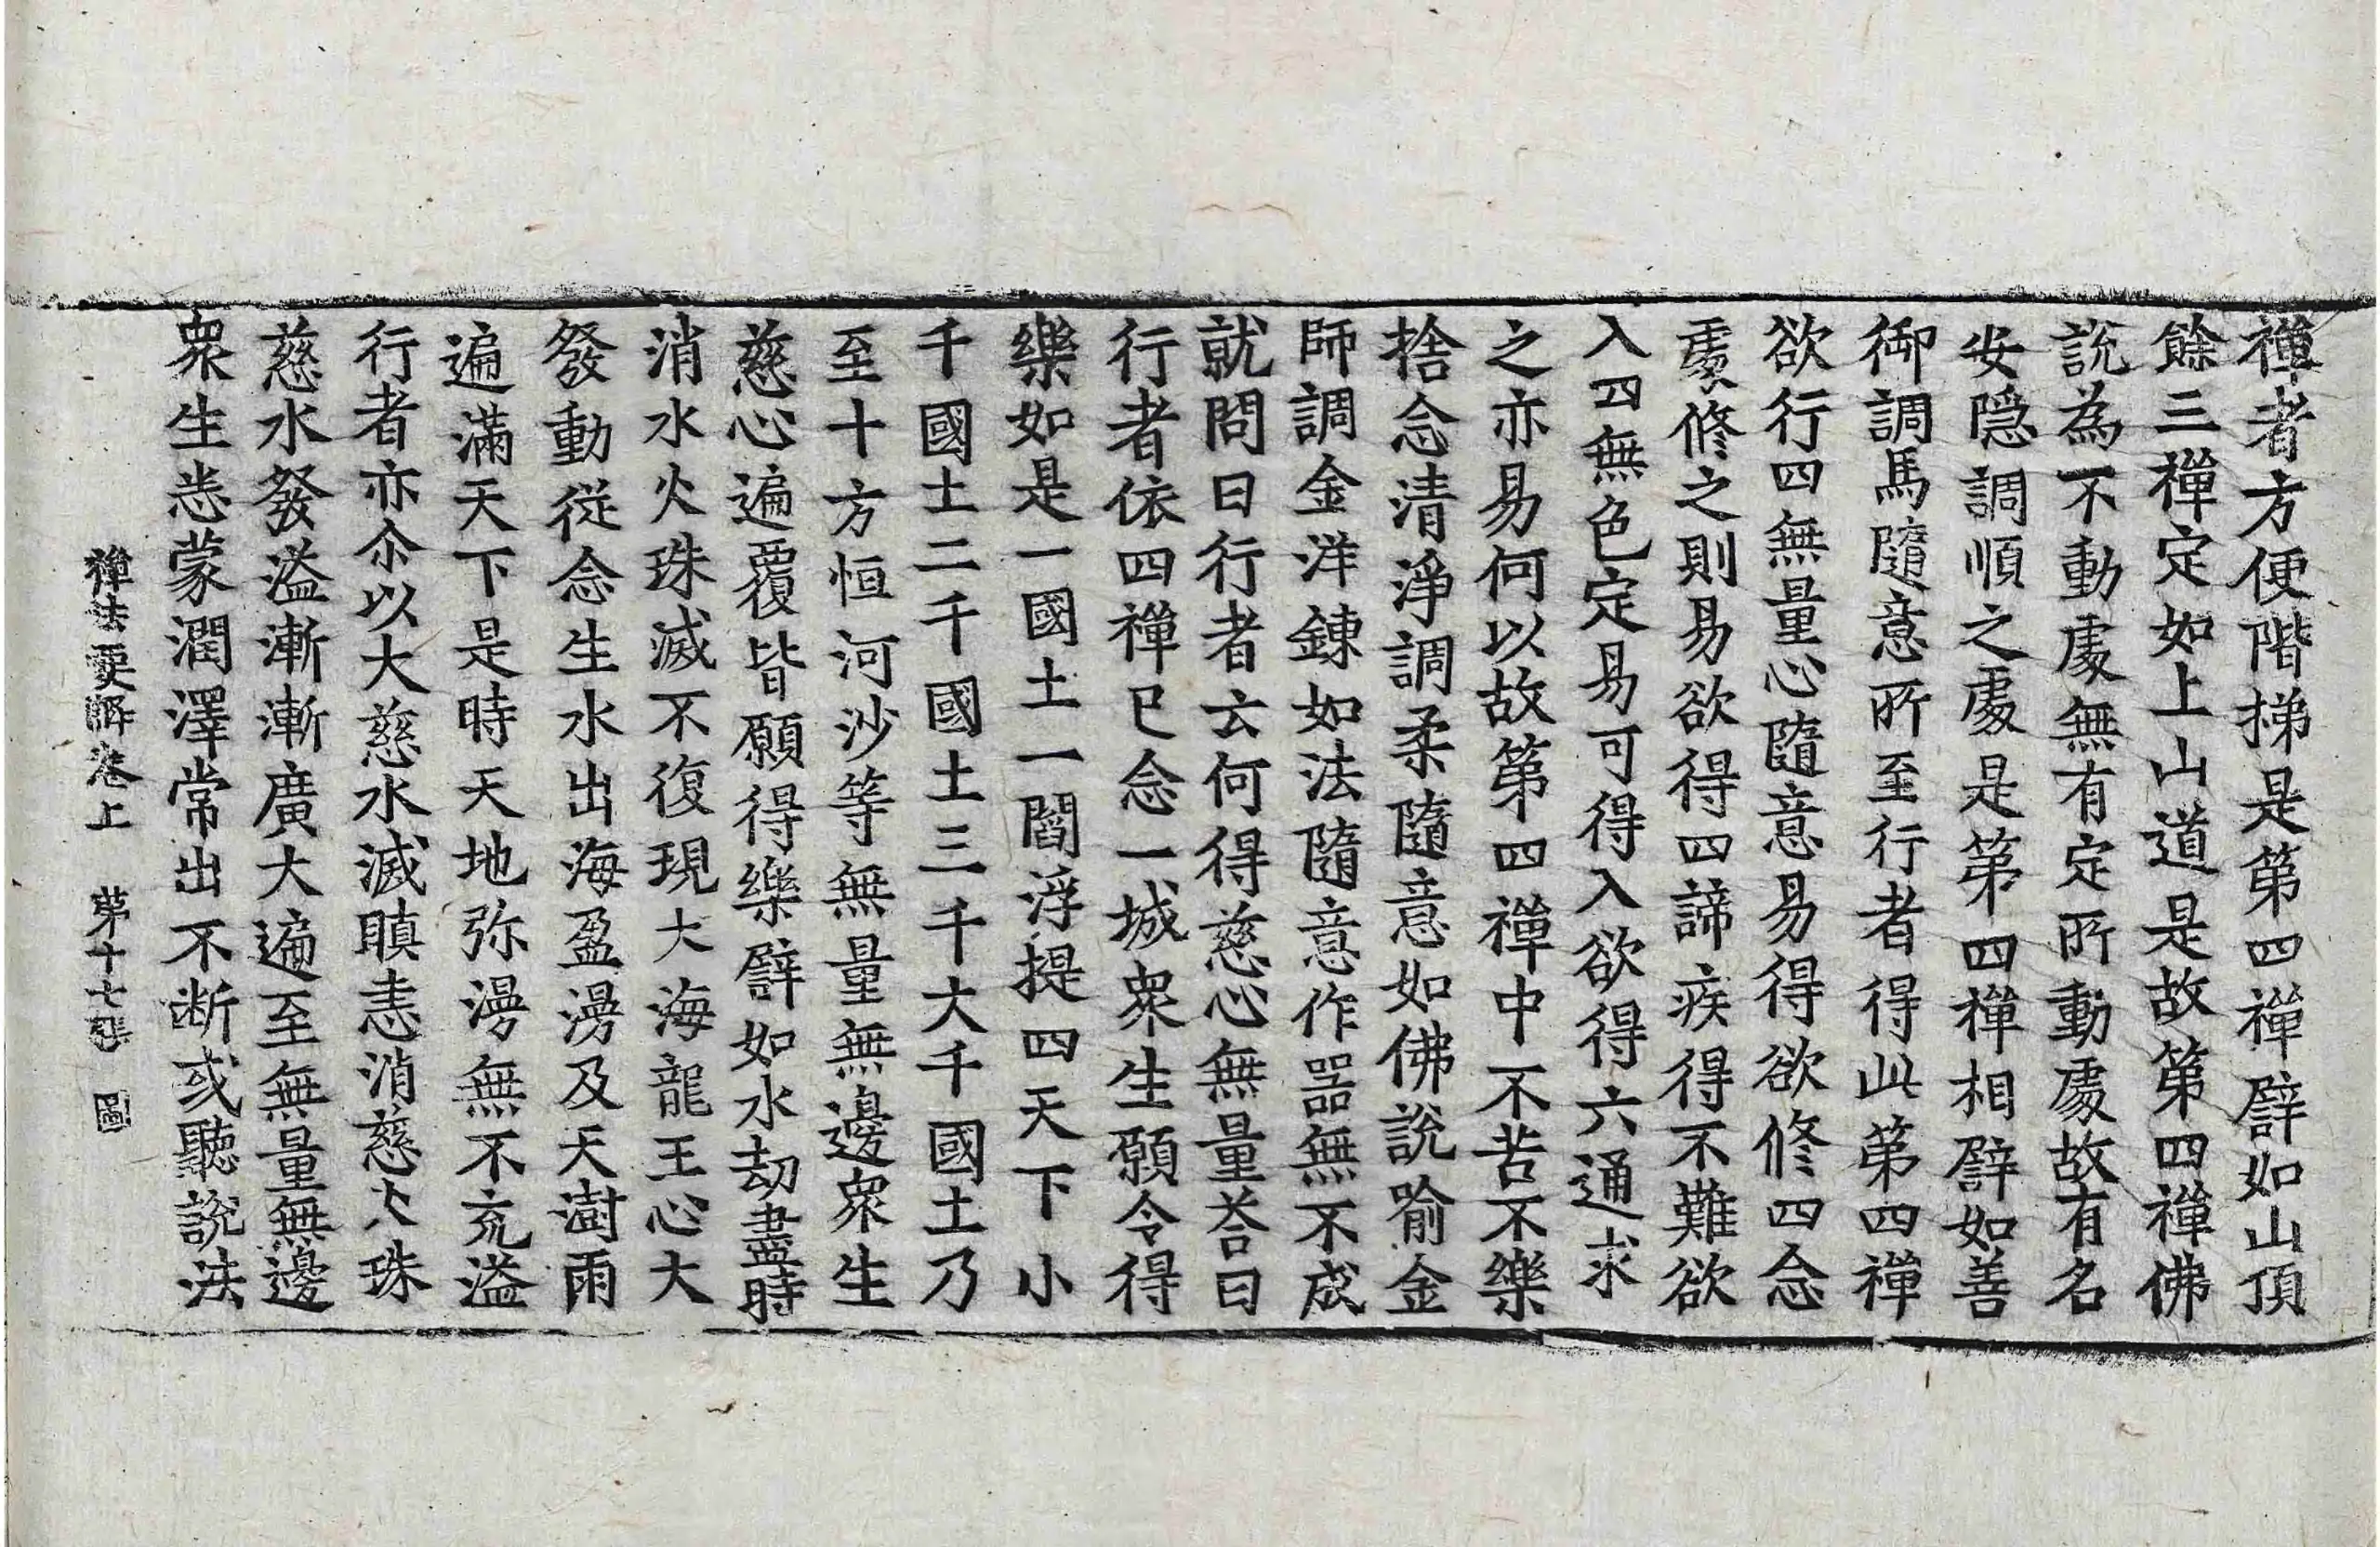 禪者方便階梯是第四禪譬如山頂
餘三禪定如上山道是故第四禪佛
說為不動處無有定所動處故有名
安隱調順之處是第四禪相譬如善
御調馬隨意所至行者得此第四禪
欲行四無量心隨意易得欲修四念
處修之則易欲得四諦疾得不難欲
入四無色定易可得入欲得六通求
之亦易何以故第四禪中不苦不樂
捨念清淨調柔隨意如佛說喻金
師調金洋鍊如法隨意作噐無不成
就問曰行者云何得慈心無量荅曰
行者依四禪已念一城衆生願令得
樂如是一國土一閻浮提四天下小
千國土二千國土三千大千國土乃
至十方恒河沙等無量無邊衆生
慈心遍覆皆願得樂譬如水劫盡時
消水火珠滅不復現大海龍王心大
發動從念生水出海盈漫及天澍雨
遍滿天下是時天地弥漫無不充溢
行者亦尒以大慈水滅瞋恚消慈火珠
慈水發溢漸漸廣大遍至無量無邊
衆生悉蒙潤澤常出不断或聽說法
禪法要解卷上 第十七張 圖